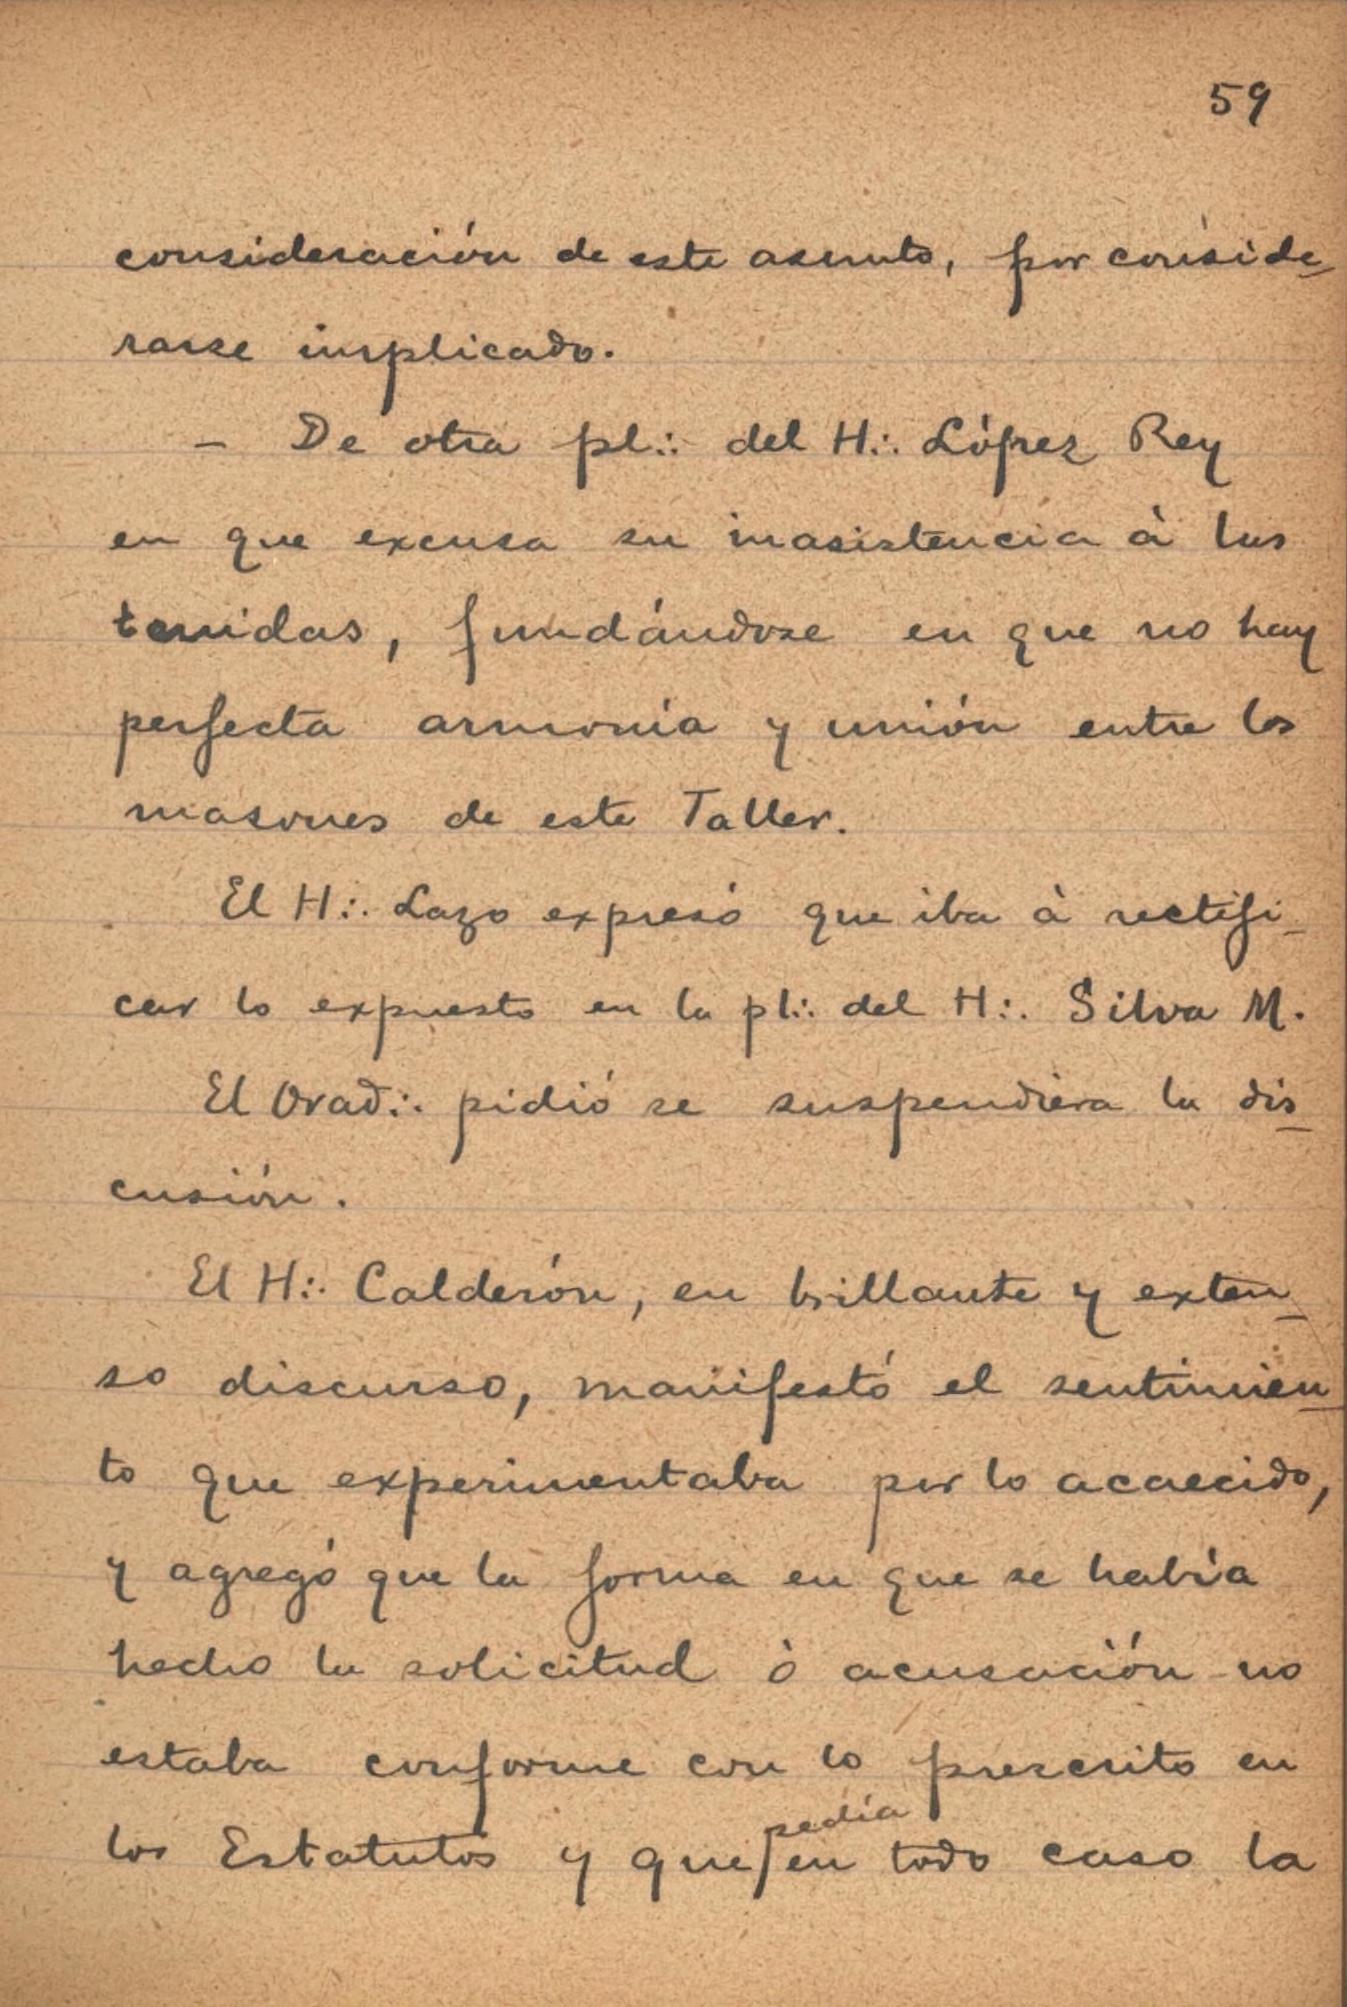 59
consideración de este asunto, por conside-
rarse implicado.
- De otra pl∴ del H∴ López Rey
en que excusa su inasistencia à las
tenidas, fundándose en que no hay
perfecta armonía y unión entre los
masones de este Taller.
El H∴ Lazo expresó que iba à rectifi-
car lo expuesto en la pl∴ del H∴ Silva M.
El Orad∴ pidió se suspendiera la dis-
cusión.
El H∴ Calderón, en brillante y exten-
so discurso, manifestó el sentimien-
to que experimentaba por lo acaecido,
y agregó que la forma en que se había
hecho la solicitud ò acusación no
estaba conforme con lo prescrito en
pedía
los Estatutos y que/en todo caso la